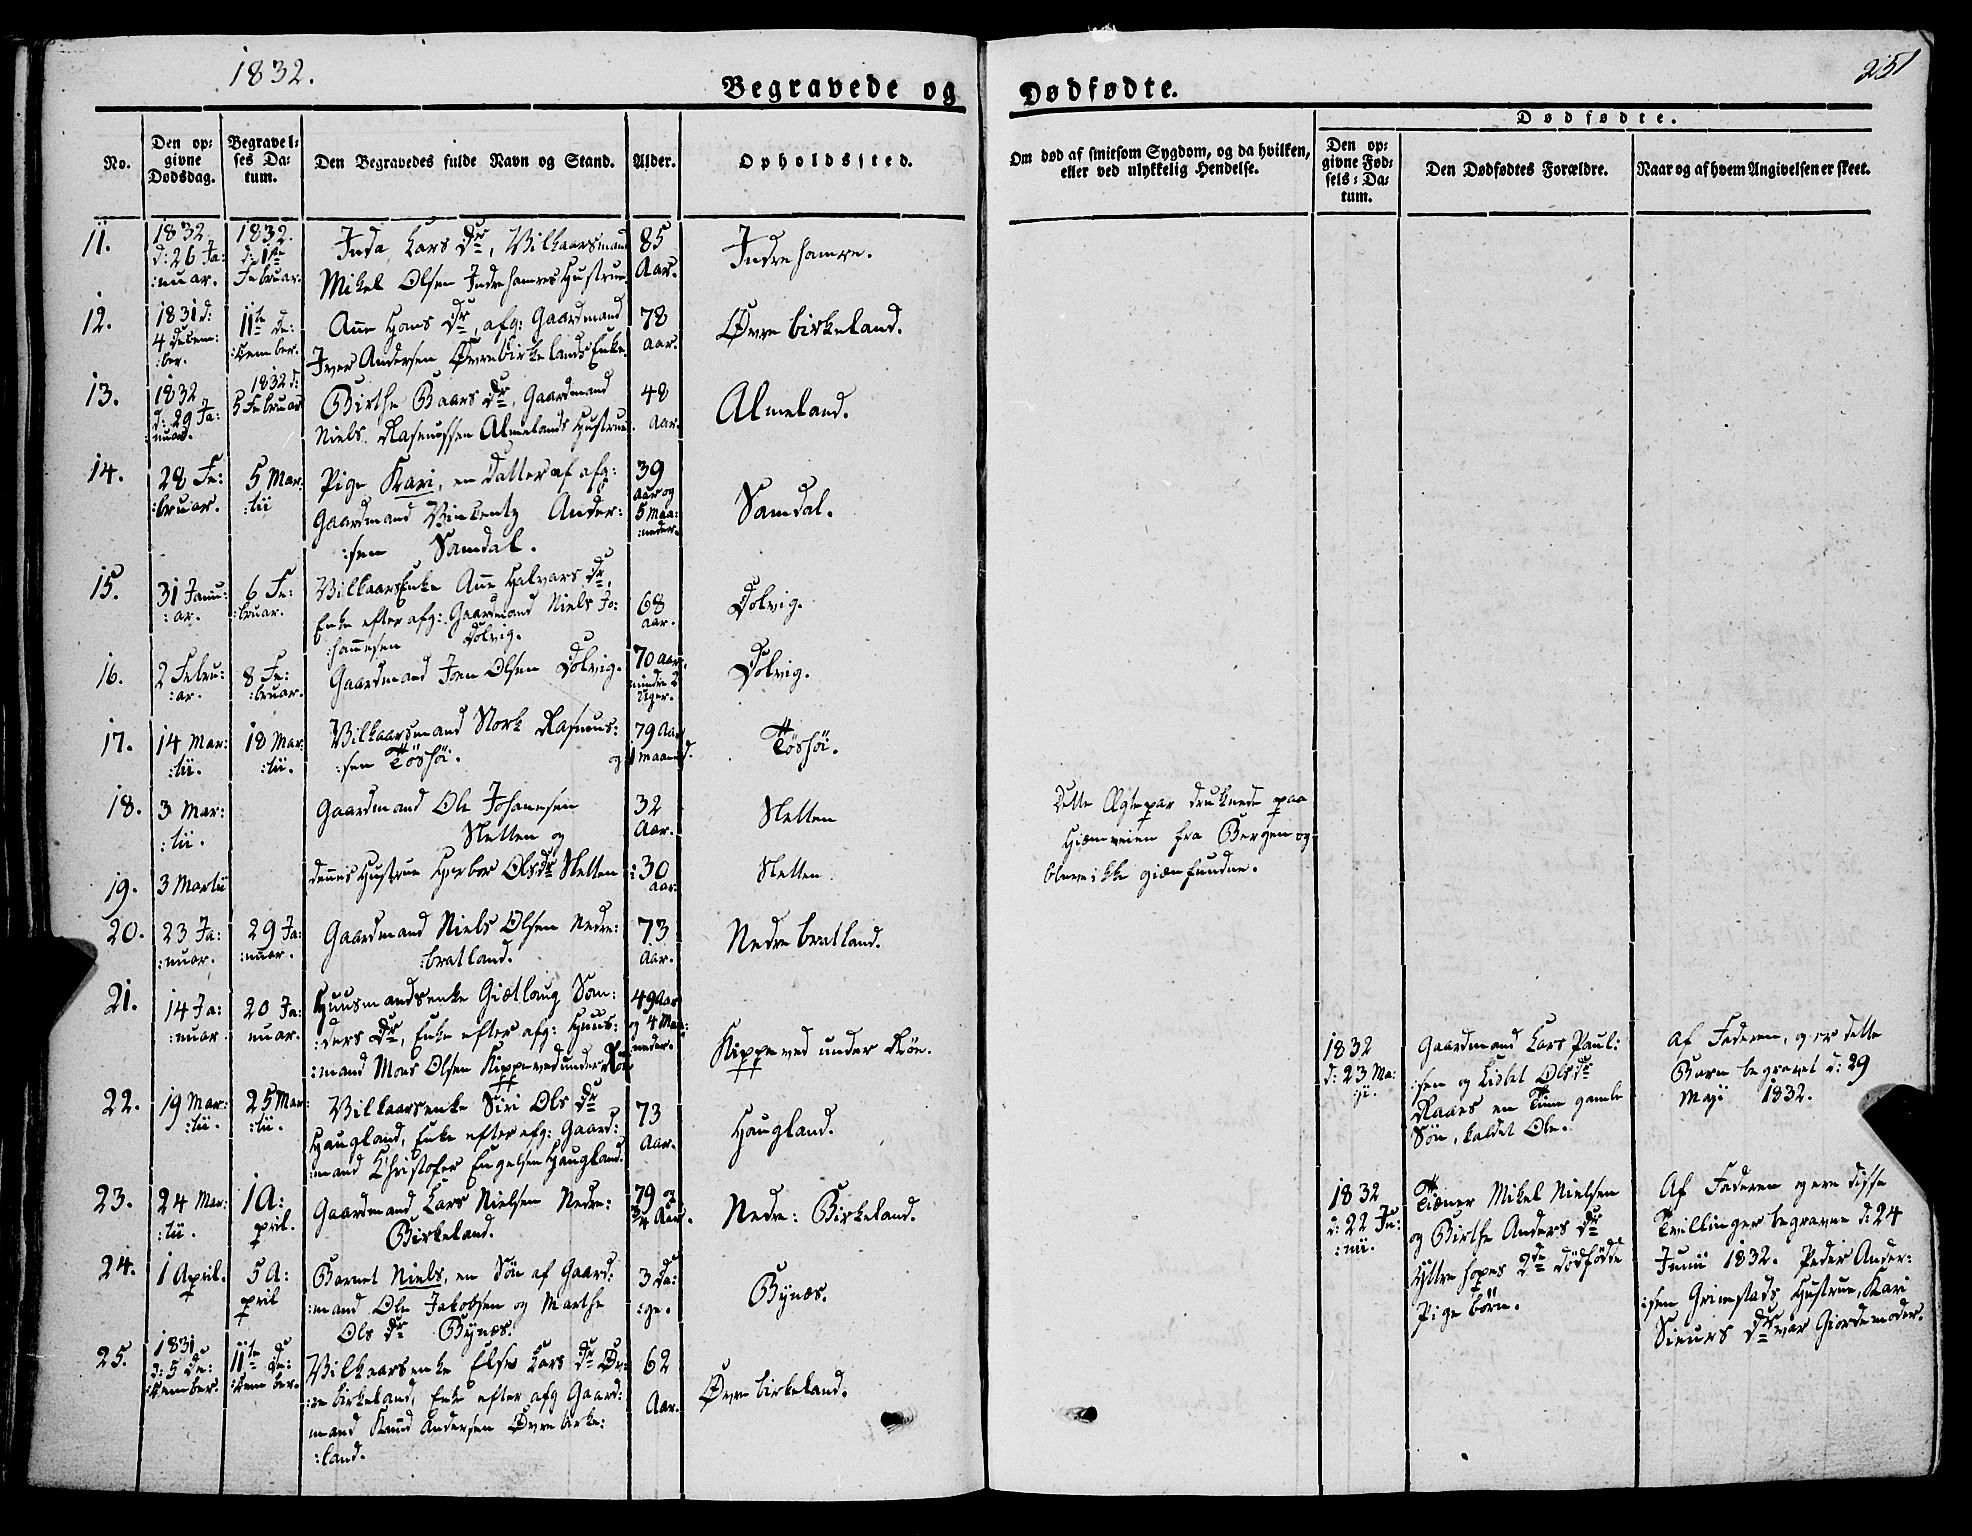 1832.
251
Begravede og Dødfødte.
No.
Den op:
givne
Dødsdag.
Begravel:
ses Da:
tum.
Den Begravedes fulde Navn og Stand.
Alder.
Opholdssted.
Om død af smitsom Sygdom, og da hvilken,
eller ved ulykkelig Hendelse.
Dødfødte.
Den op:
givne Fød:
sels: Da:
tum.
Den Dødfødtes Forældre.
Naar og af hvem Angivelsen er skeet.
11.
1832
d: 26 Ja:
:nuar.
1832.
d: 1ste
Februar.
Lars Dr, Vilkaarsmand
Mikel Olsen Indrehamres Hustrue
85
Aar.
Indrehamre.
12.
1831 d:
4 Decem:
:ber.
11te De:
:cember.
Ane Hans Dr, afg: Gaardmand
Iver Andersen Øvrebirkelands Enke.
78
Aar.
Øvrebirkeland.
13.
1832
d: 29 Ja:
nuar.
1832 d:
5 Februar
Birthe Baars Dr, Gaardmand
Niels Rasmussen Almelands Hustrue.
48
Aar.
Almeland.
14.
28 Fe:
:bruar.
5 Mar:
:tii
Pige Kari, en Datter af afg:
Gaardmand Vincentz Ander:
:sen Samdal.
39
Aar og
5 Maa:
:neder.
Samdal.
15.
31 Janu:
:ar.
6 Fe:
:bruar.
VilkaarsEnke Ane Halvars Dr,
Enke efter afg: Gaardmand Niels Jo:
:hannesen Dolvig.
68
Aar.
Dolvig.
16.
2 Febru:
:ar.
8 Fe:
:bruar.
Gaardmand Joen Olsen Dolvig.
70 Aar
mindre 2
Uger.
Dolvig.
17.
14 Mar:
:tii.
18 Mar:
:tii.
Vilkaarsmand Stork Rasmus:
:sen Tøshøi.
79 Aar
og 1 maaned.
Tøshøi.
18.
3 Mar:
:tii.
Gaardmand Ole Johannesen
Sletten og
32
Aar.
Sletten
Dette Ægtepar druknede paa
Hjemveien fra Bergen og
bleve ikke gienfundne.
19.
3 Martii
dennes Hustrue Herbor Olsdr Sletten
:30
Aar.
Sletten
20.
23 Ja:
:nuar.
29 Ja:
:nuar.
Gaardmand Niels Olsen Nedre:
:bratland.
73
Aar.
Nedrebratland.
21.
14 Ja:
:nuar.
20 Ja:
nuar.
Huusmandsenke Giætlaug Son:
:ders Dr, Enke efter afg: Huus:
:mand Mons Olsen Kippeved under Røe
49 Aar
og 4 Maa:
:neder.
Kippeved under Røe.
1832
d: 23 Ma:
:ji.
Gaardmand Lars Paul:
:sen og Lisbet Olsdr
Raaes en Time gamle
Søn, kaldet Ole.
Af Faderen, og er dette
Barn begravet d: 29
Maji 1832.
22.
19 Mar:
:tii.
25 Mar:
:tii.
Vilkaarsenke Siri Ols Dr
Haugland, Enke efter afg: Gaard:
:mand Christofer Engelsen Haugland.
73
Aar.
Haugland.
23.
24 Mar:
:tii.
1 A:
pril.
Gaardmand Lars Nielsen Nedre:
Birkeland.
79 og
3/4 Aar.
Nedre: Birkeland.
1832
d: 22 Ju:
:nii.
Tiener Mikel Nielsen
og Birthe Anders Dr
Yttrehopes 2de dødfødte
Pigebørn.
Af Faderen og ere disse
Tvillinger begravne d: 24
Junii 1832. Peder Ander:
:sen Grimstads Hustrue, Kari
Siuurs Dr var Giordemoder.
24.
1 April.
5 A:
pril
Barnet Niels, en Søn af Gaard:
:mand Ole Jakobsen og Marthe
Ols Dr Bynæs.
3 Da:
:ge.
Bynæs.
25.
1831
d: 5 De:
:cember.
11te De:
:cember.
Vilkaarsenke Else Lars Dr Øv:
:re birkeland, Enke efter afg Gaard:
mand Knud Andersen Øvre birke:
:land.
62
Aar.
Øvrebirkeland.